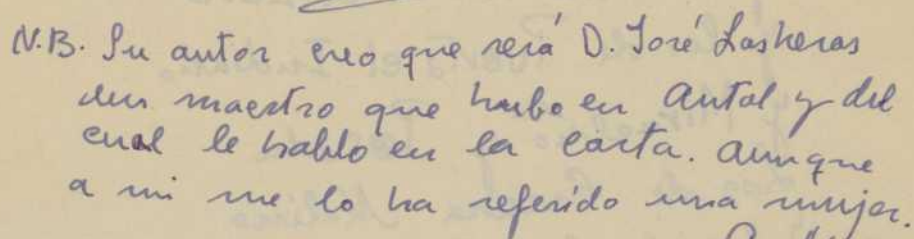 N.B. Su autor creo que será D. José Lasheras
un maestro que hubo en Antol y del
cual le hablo en la carta. Aunque
a mi me lo ha referido una mujer.